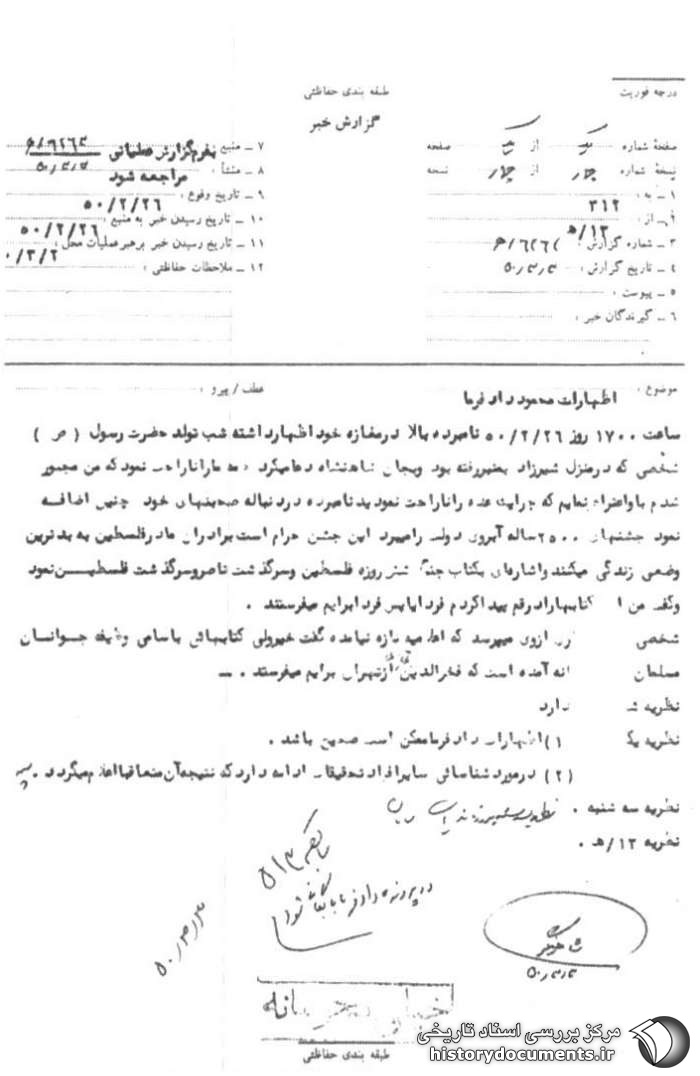 درجه فوریت
طبقه بندی حفاظتی
گزارش خبر
صفحهٔ شماره یک از یک صفحه
نسخهٔ شماره چهار از چهار نسخه
۱ ــ به : ۳۱۲
۲ــ از : ۱۳/ه
۳ ــ شماره گزارش :
۴ ــ تاریخ گزارش :
۵ ــ پیوست :
۶ ــ گیرندگان خبر :
۷ ــ منبع بفرم گزارش عملیاتی
۸ ــ منشأ : مراجعه شود
۹ ــ تاریخ وقوع : ۵۰/۲/۲۶
۱۰ ــ تاریخ رسیدن خبر به منبع : ۵۰/۲/۲۶
۱۱ ــ تاریخ رسیدن خبر برهبر عملیات محل : ۰/۳/۲
۱۲ ــ ملاحظات حفاظتی :
موضوع : اظهارات محمود دادفرما
عطف / پیرو :
ساعت ۱۷۰۰ روز ۵۰/۲/۲۶ نامبرده بالا در مغازه خود اظهار داشته شب تولد حضرت رسول ( ص )
شخصی که در منزل شیرزاد بمنبر رفته بود وبجان شاهنشاه دعا میکرد همه مارا ناراحت نمود که من مجبور
شدم باو اعتراض نمایم که چرا این عده را ناراحت نمودید نامبرده در دنباله صحبتهای خود چنین اضافه
نمود جشنهای ۲۵۰۰ ساله آبروی دولت را میبرد این جشن حرام است برادران ما در فلسطین به بدترین
وضعی زندگی میکنند واشاره‌ای بکتاب جنگ شش روزه فلسطین وسرگذشت ناصر وسرگذشت فلسطین نمود
وگفت من کتابهارا رقم پیدا کردم فردا یا پس فردا برایم میفرستند .
شخصی ازوی میپرسد که اعلامیه تازه نیامده گفت خیر ولی کتابهائی باسامی وظیفه جوانان
مسلمان آمده است که فخرالدین از تهران برایم میفرستد . ــ
نظریه ندارد
نظریه یک ۱) اظهارات دادفرما ممکن است صحیح باشد .
(۲) در مورد شناسائی سایر افراد تحقیقات ادامه دارد که نتیجه آن متعاقبا اعلام میگردد .
نظریه سه شنبه .
نظریه ۱۳/ه .
بایگانی ۵۱۳
در پرونده دادفرما بایگانی شود
خیلی محرمانه
طبقه بندی حفاظتی
مرکز بررسی اسناد تاریخی
historydocuments.ir